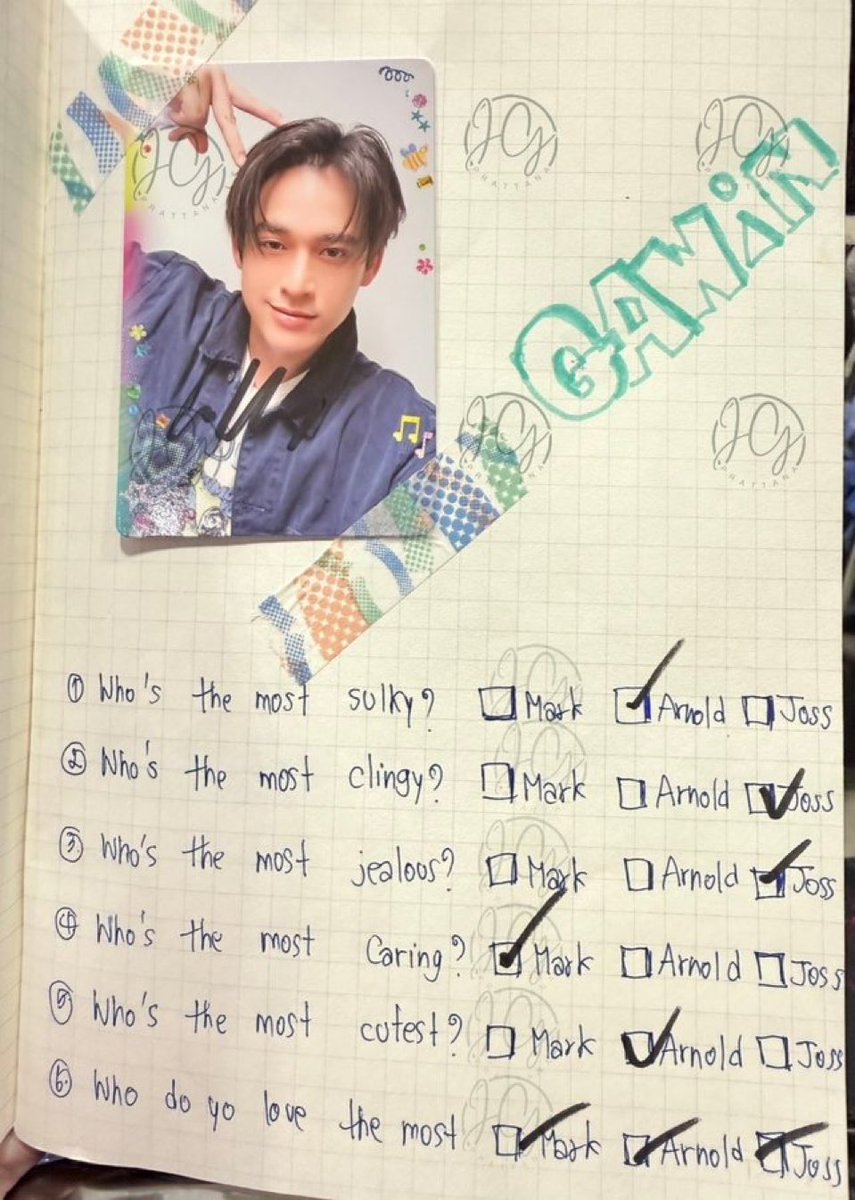 GAWiN
① Who's the most sulky? Mark Arnold Joss
② Who's the most clingy? Mark Arnold Joss
③ Who's the most jealous? Mark Arnold Joss
④ Who's the most Caring? Mark Arnold Joss
⑤ Who's the most cutest? Mark Arnold Joss
⑥ Who do yo love the most Mark Arnold Joss
JG
PRATTANA